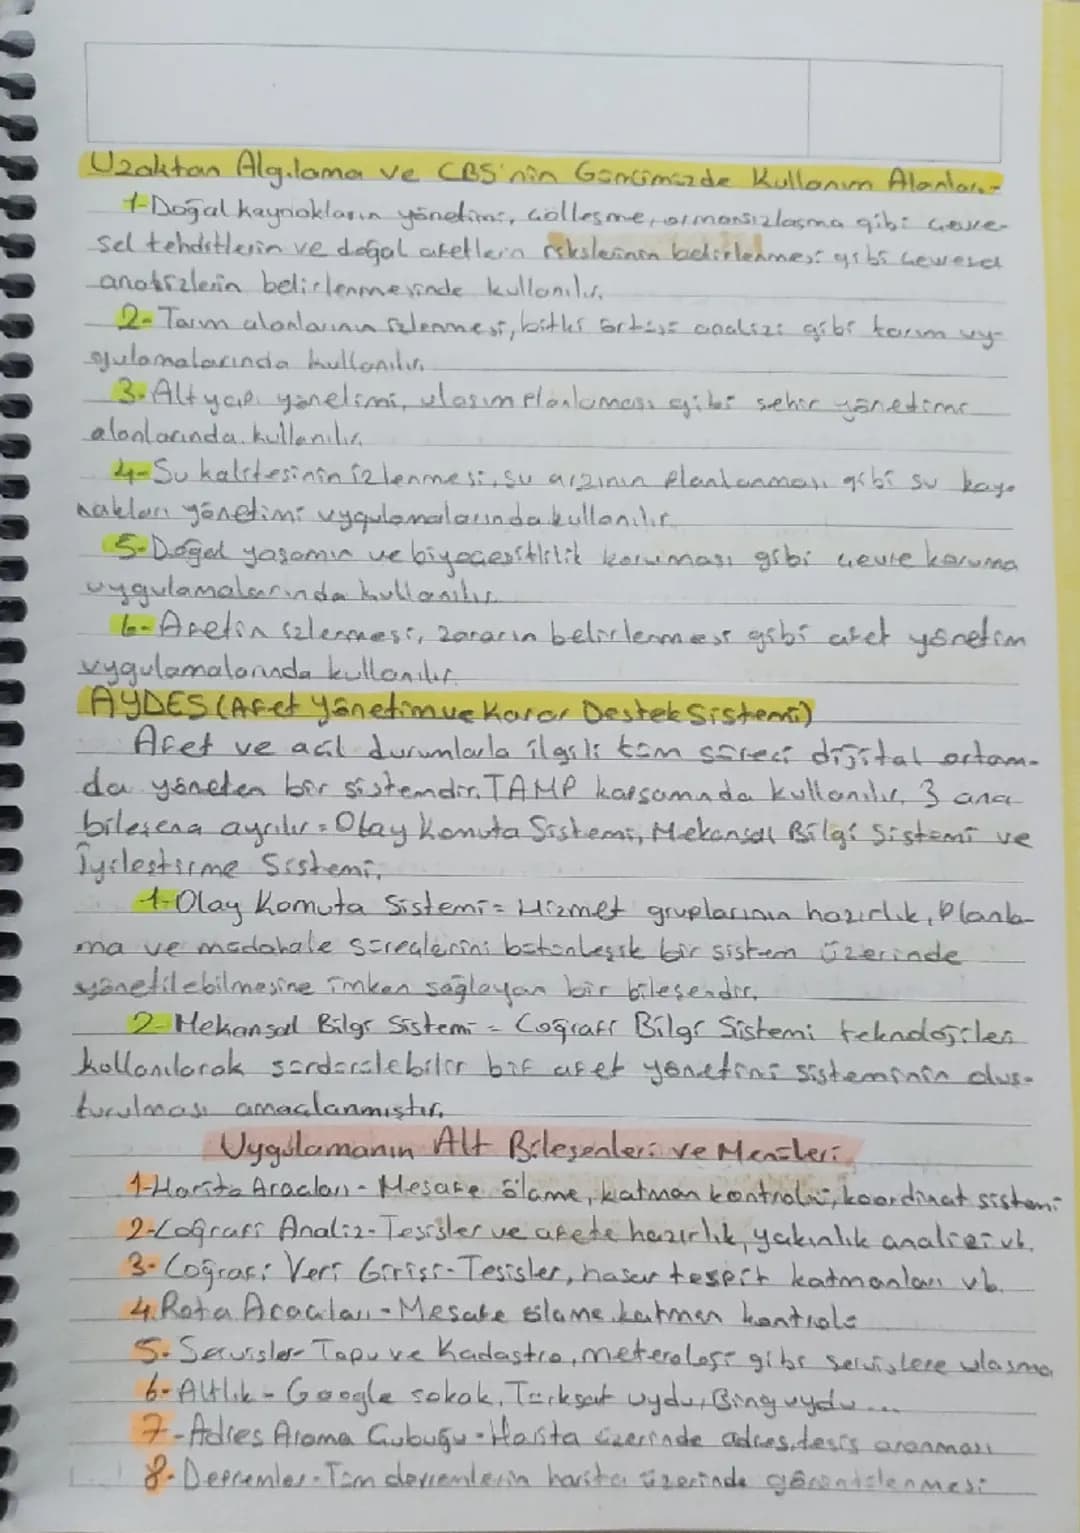 Uzaktan Algılama ve CBS'nin Günümüzde Kullanım Alanları-
1-Doğal kaynakların yönetimi, çölleşme, ormansızlaşma gibi çevre-
sel tehditlerin ve doğal afetlerin risklerinin belirlenmesi gibi çevresel
analizlerin belirlenmesinde kullanılır.
2- Tarım alanlarının izlenmesi, bitki örtüsü analizi gibi tarım uy-
gulamalarında kullanılır.
3- Altyapı yönetimi, ulaşım planlaması gibi şehir yönetimi
alanlarında kullanılır.
4- Su kalitesinin izlenmesi, su arzının planlanması gibi su kay-
nakları yönetimi uygulamalarında kullanılır.
5- Doğal yaşamın ve biyoçeşitlilik koruması gibi çevre koruma
uygulamalarında kullanılır.
6- Afetin izlenmesi, zararın belirlenmesi gibi afet yönetim
uygulamalarında kullanılır.
AYDES (Afet Yönetim ve Karar Destek Sistemi)
Afet ve acil durumlarla ilgili tüm süreci dijital ortam-
da yöneten bir sistemdir. TAMP kapsamında kullanılır. 3 ana
bileşene ayrılır = Olay Komuta Sistemi, Mekansal Bilgi Sistemi ve
İyileştirme Sistemi.
1-Olay Komuta Sistemi = Hizmet gruplarının hazırlık, planla-
ma ve müdahale süreçlerini bütünleşik bir sistem üzerinde
yönetilebilmesine imkan sağlayan bir bileşendir.
2- Mekansal Bilgi Sistemi = Coğrafi Bilgi Sistemi teknolojileri
kullanılarak sürdürülebilir bir afet yönetimi sisteminin oluş-
turulması amaçlanmıştır.
Uygulamanın Alt Bileşenleri ve Menüleri
1-Harita Araçları - Mesafe ölçme, katman kontrolü, koordinat sistemi
2-Coğrafi Analiz - Tesisler ve afete hazırlık, yakınlık analizi vb.
3- Coğrafi Veri Girişi - Tesisler, hasar tespit katmanları vb.
4. Rota Araçları - Mesafe ölçme katman kontrolü
5. Servisler - Tapu ve Kadastro, meteroloji gibi servislere ulaşma
6- Altlık - Google sokak, Türksat uydu, Bing uydu...
7-Adres Arama Çubuğu - Harita üzerinde adres, tesis aranması
8- Depremler - Tüm depremlerin harita üzerinde görüntülenmesi